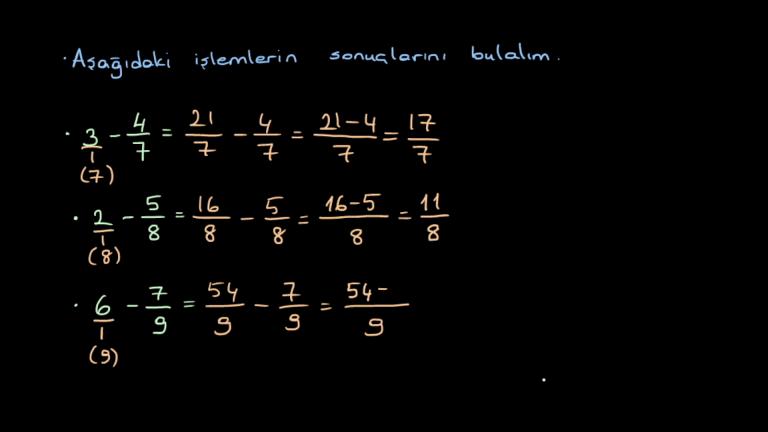 · Aşağıdaki işlemlerin sonuçlarını bulalım.
· 3/1 (7) − 4/7 = 21/7 − 4/7 = 21−4/7 = 17/7
· 2/1 (8) − 5/8 = 16/8 − 5/8 = 16−5/8 = 11/8
· 6/1 (9) − 7/9 = 54/9 − 7/9 = 54−/9